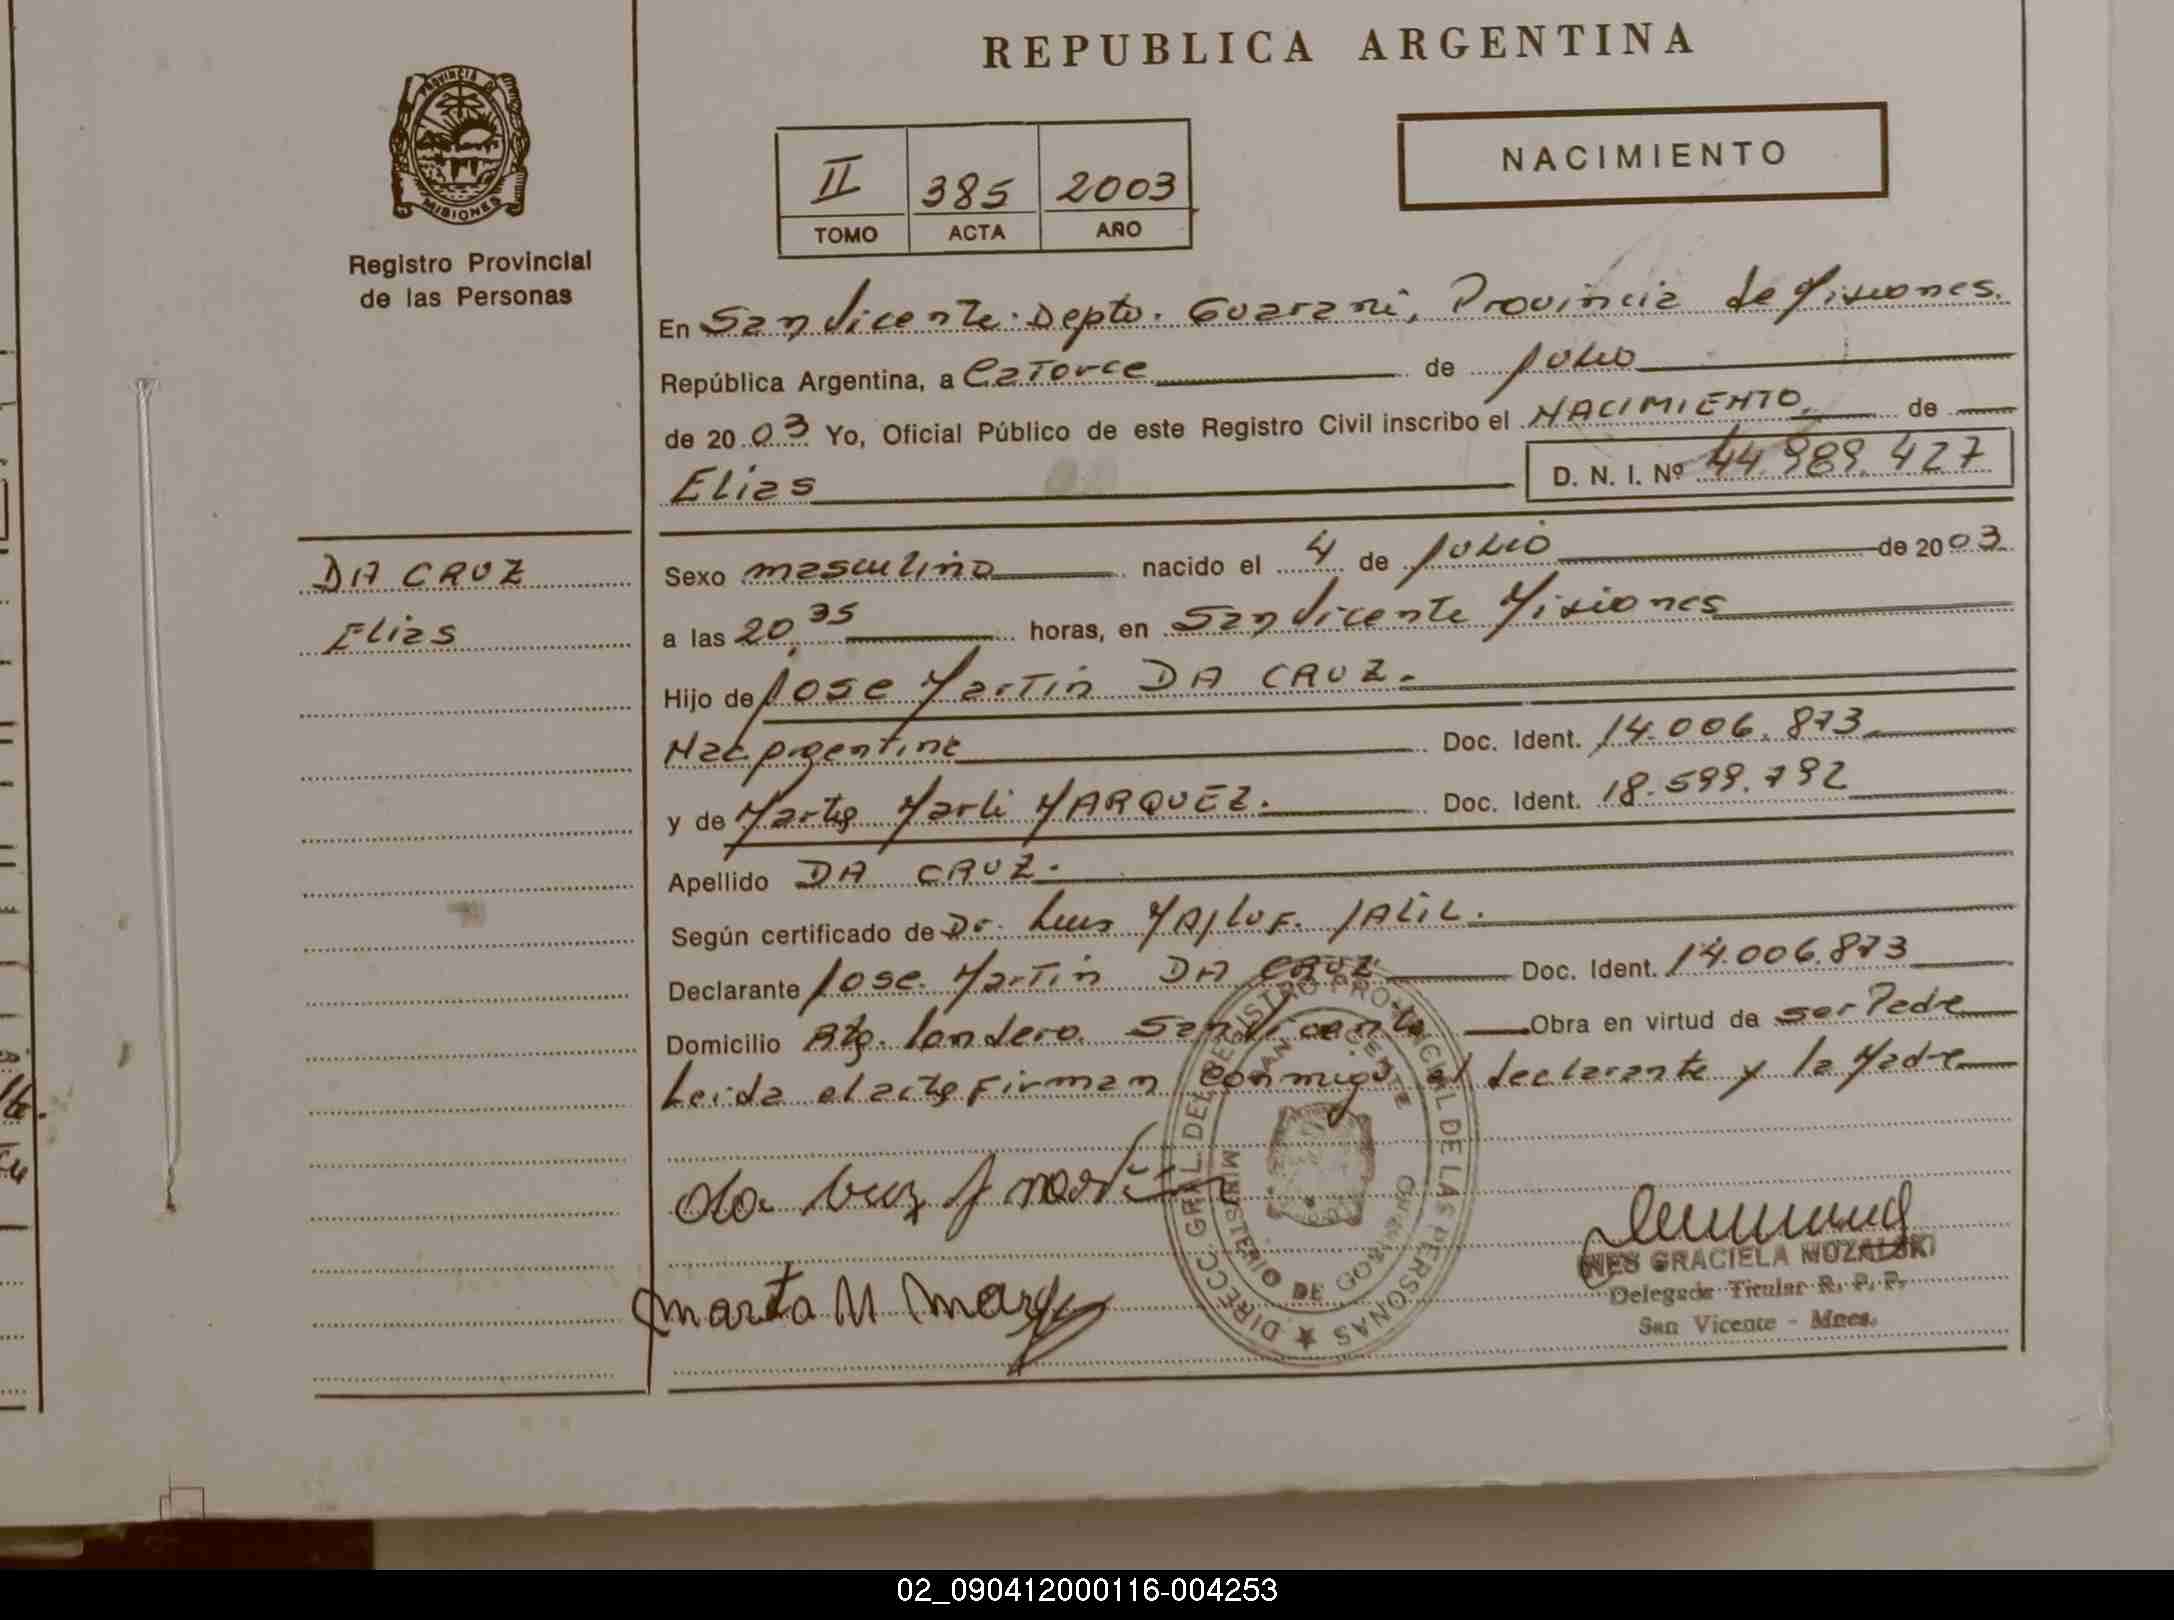 REPUBLICA ARGENTINA
PROVINCIA DE
MISIONES
Registro Provincial
de las Personas
II 385 2003
TOMO ACTA AÑO
NACIMIENTO
En San Vicente. Depto. Guarani, Provincia de Misiones.
República Argentina, a Catorce de Julio
de 2003 Yo, Oficial Público de este Registro Civil inscribo el NACIMIENTO. de
Elias D. N. I. Nº 44.989.427
DA CRUZ
Elias
Sexo masculino nacido el 4 de Julio de 2003
a las 20,35 horas, en San Vicente Misiones
Hijo de Jose Martin DA CRUZ.
Nac. Argentina Doc. Ident. 14.006.873
y de Marta Marli MARQUEZ. Doc. Ident. 18.599.792
Apellido DA CRUZ.
Según certificado de Dr. Luis MAJLUF. JALIL.
Declarante Jose Martin DA CRUZ Doc. Ident. 14.006.873
Domicilio San Vicente Obra en virtud de ser Padre
Leida el acta Firman conmigo el declarante y la Madre
da Cruz J Martin
Marta M Marq
DIRECC. GRAL. DEL REGISTRO PROVINCIAL DE LAS PERSONAS
SAN VICENTE
MINISTERIO DE GOBIERNO
INES GRACIELA MOZALSKI
Delegada Titular R. P. P.
San Vicente - Mnes.
02_090412000116-004253